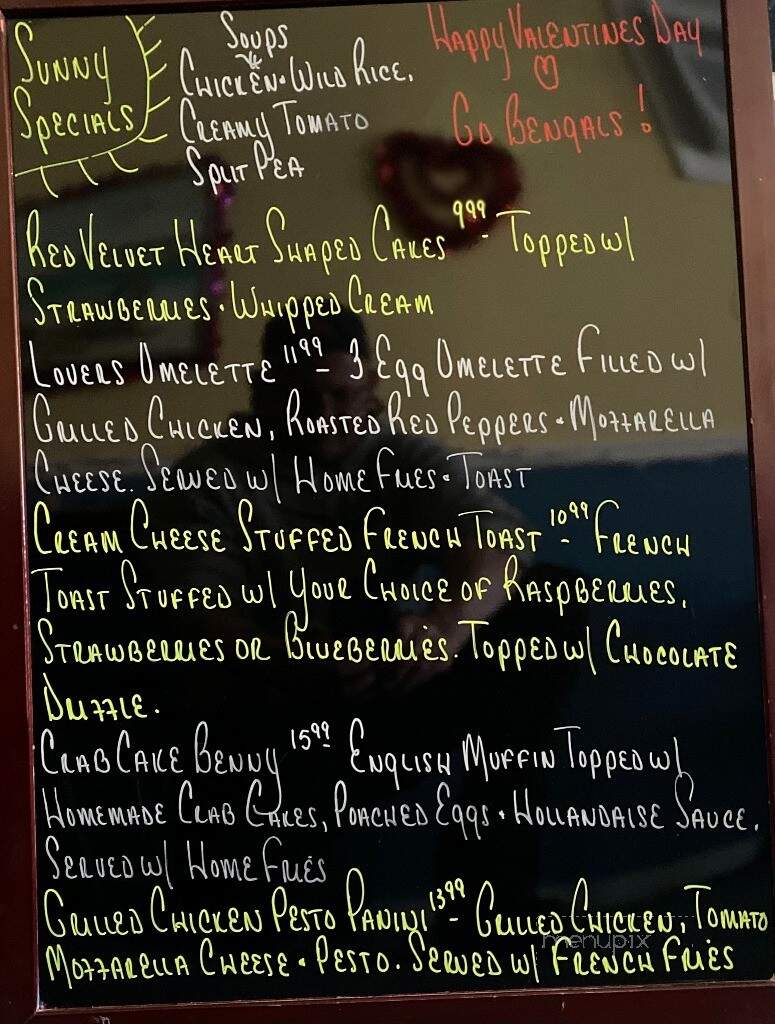 Sunny
Specials
Soups
Chicken • Wild Rice,
Creamy Tomato
Split Pea
Happy Valentines Day
Go Bengals!
Red Velvet Heart Shaped Cakes 9.99 - Topped w/
Strawberries • Whipped Cream
Lovers Omelette 11.99 - 3 Egg Omelette Filled w/
Grilled Chicken, Roasted Red Peppers • Mozzarella
Cheese. Served w/ Home Fries • Toast
Cream Cheese Stuffed French Toast 10.99 - French
Toast Stuffed w/ Your Choice of Raspberries,
Strawberries or Blueberries. Topped w/ Chocolate
Drizzle.
Crab Cake Benny 15.99 - English Muffin Topped w/
Homemade Crab Cakes, Poached Eggs • Hollandaise Sauce.
Served w/ Home Fries
Grilled Chicken Pesto Panini 13.99 - Grilled Chicken, Tomato
Mozzarella Cheese • Pesto. Served w/ French Fries
menupix